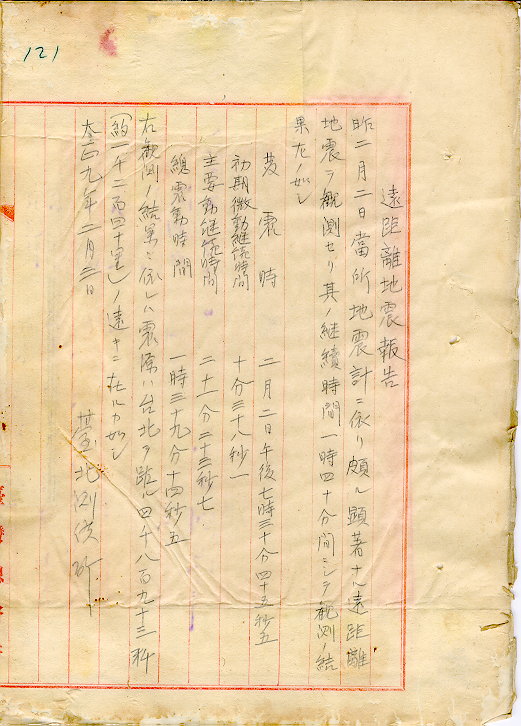 121
遠距離地震報告
昨二月二日當所地震計ニ依リ頗ル顕著ナル遠距離
地震ヲ観測セリ其ノ継續時間一時四十分間ニシテ観測ノ結
果左ノ如シ
発震時 二月二日午後七時三十分四十五秒五
初期微動継続時間 十分三十八秒一
主要動継続時間 二十一分三十三秒七
總震動時間 一時三十九分十四秒五
右観測ノ結果ニ依レハ震源ハ台北ヲ距ル四千八百九十三粁
(約一千二百四十里)ノ遠キニ在ルカ如シ
大正九年二月三日
臺北測候所